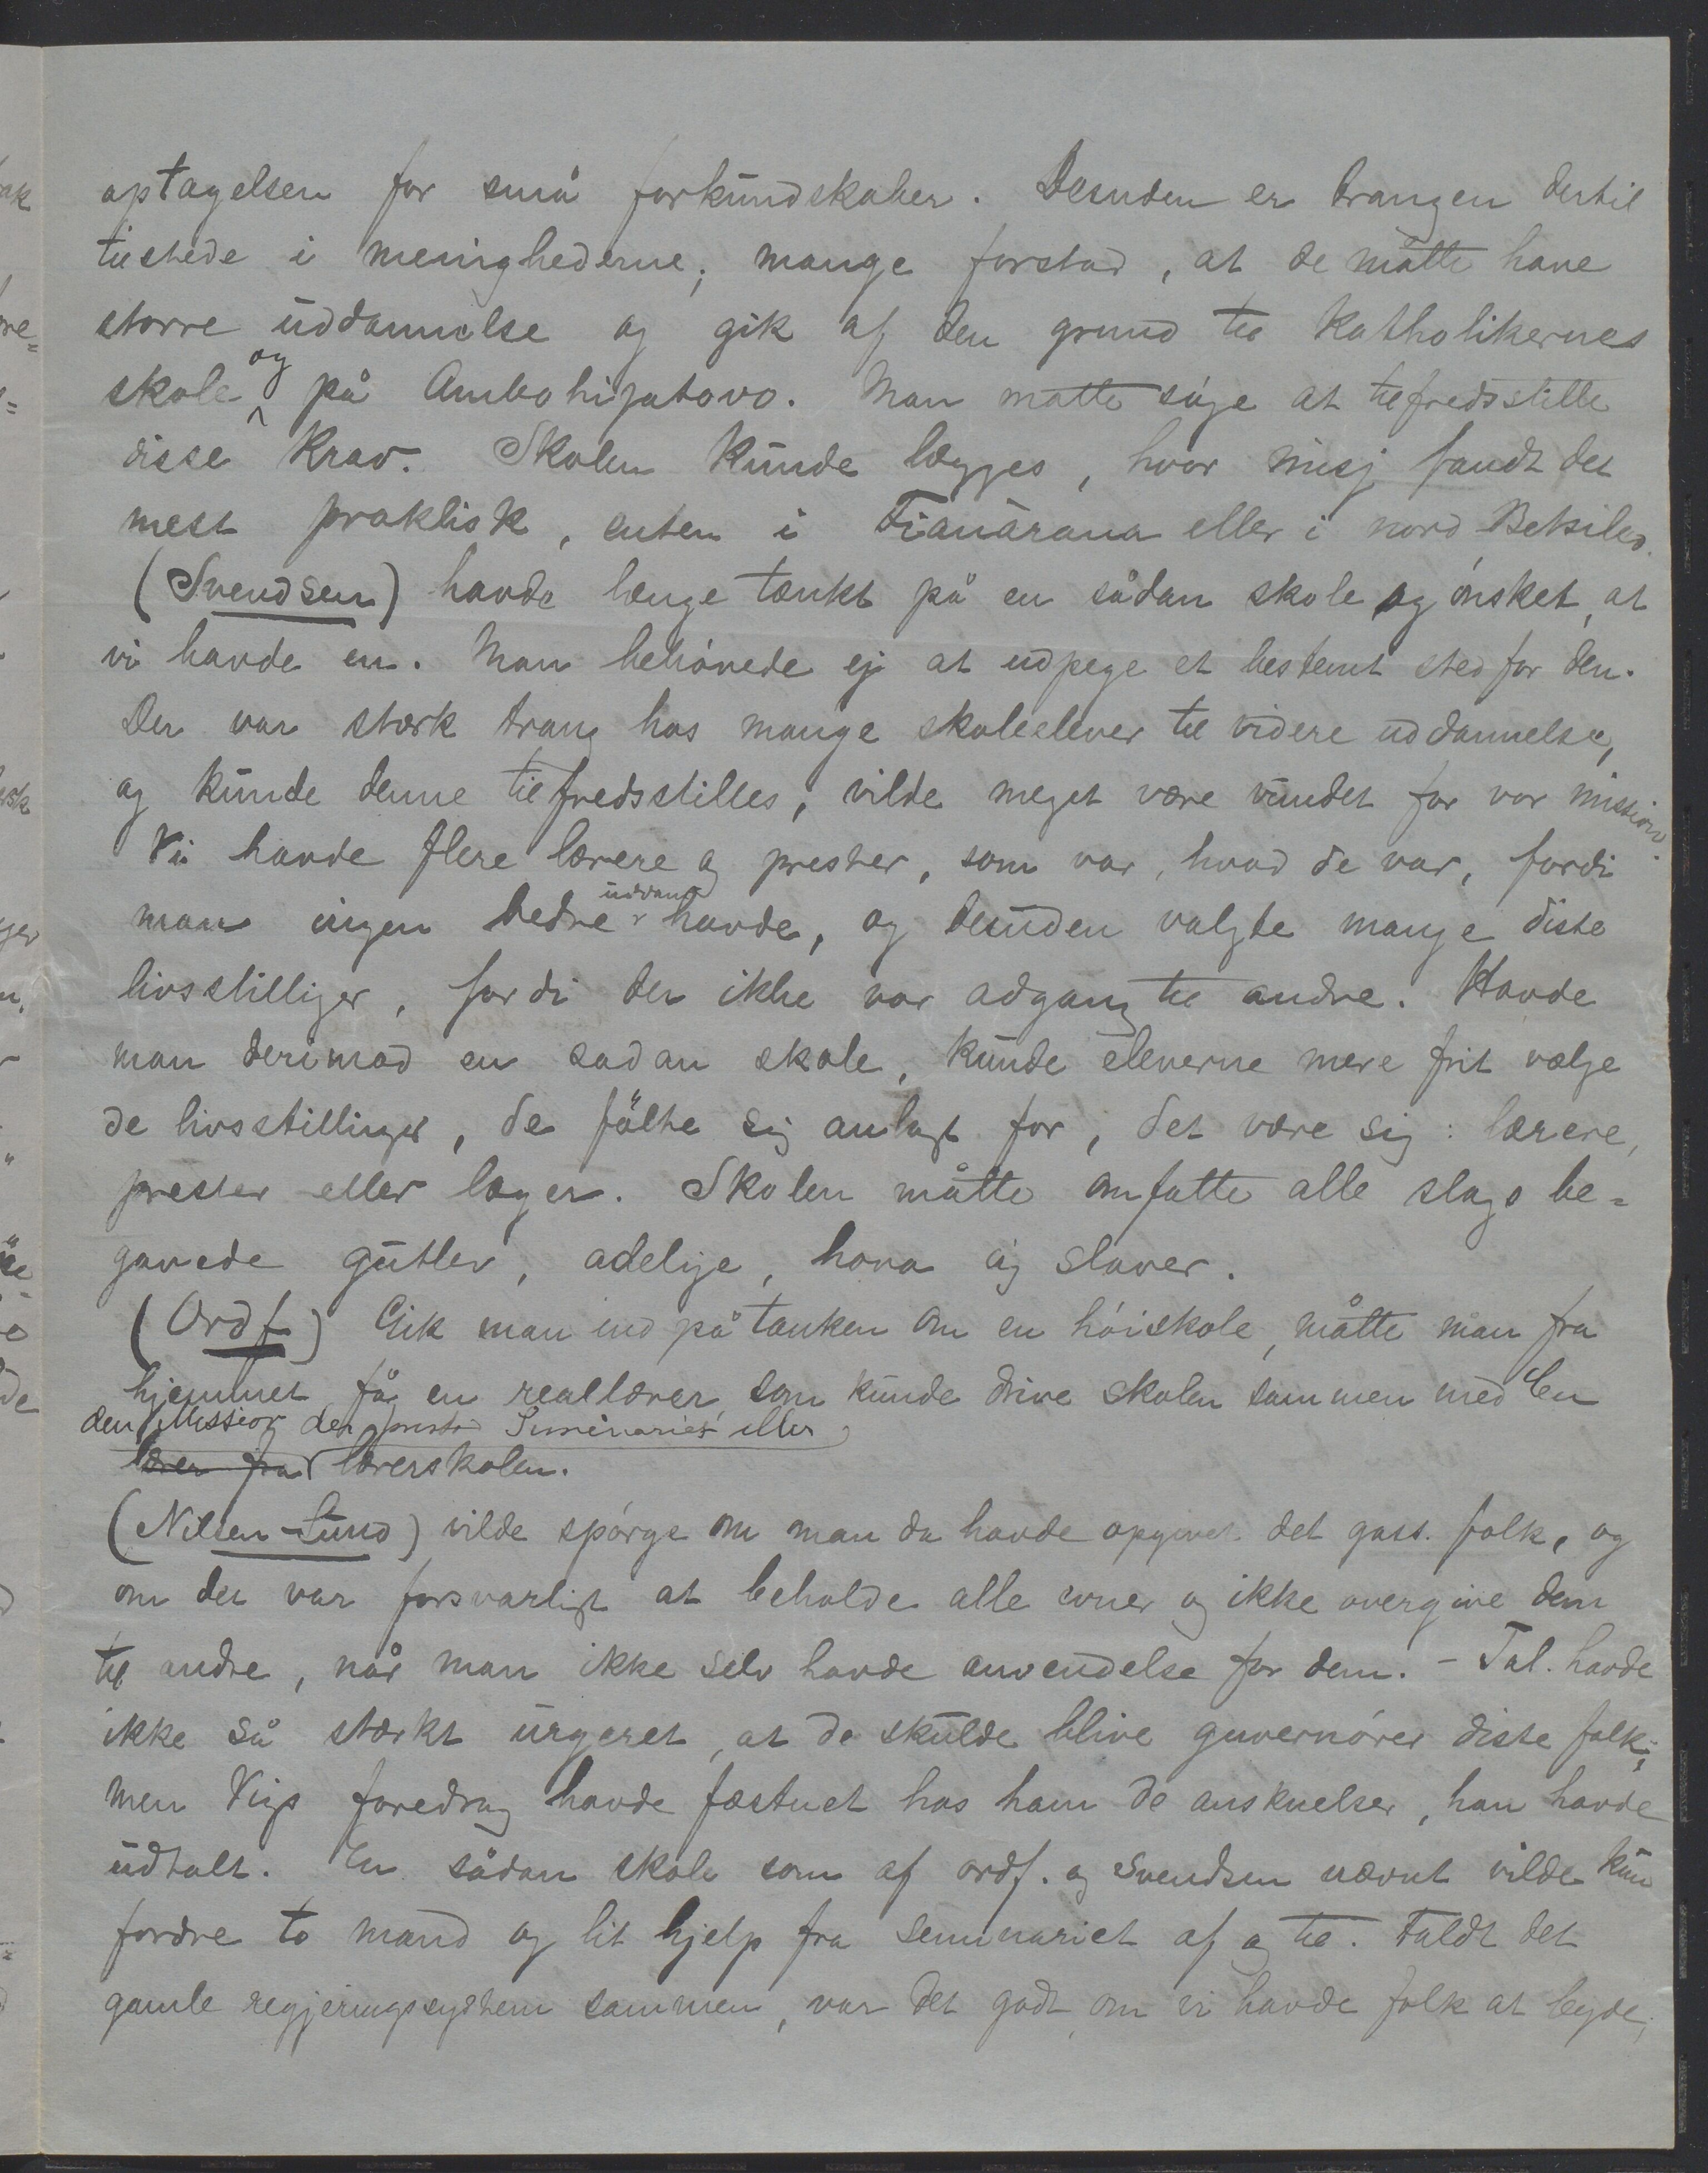 optagelsen for små forkundskaber. Desuden er trangen dertil
tilstede i menighederne; mange forstod, at de måtte have
større uddannelse og gik af den grund til Katholikernes
skole og på Ambohijatovo. Man måtte søge at tilfredsstille
disse Krav. Skolen kunde lægges, hvor misj fandt det
mest praktisk, enten i Fianarana eller i nord Betsileo.
(Svendsen) havde længe tænkt på en sådan skole og ønsket, at
vi havde en. Man behøvede ej at udpege et bestemt sted for den.
Der var stærk trang hos mange skoleelever til videre uddannelse,
og kunde denne tilfredsstilles, vilde meget være vundet for vor mission.
Vi havde flere lærere og prester, som var, hvad de var, fordi
man ingen bedre uddand havde, og desuden valgte mange disse
livsstillger, fordi der ikke var adgang til andre. Havde
man derimod en sådan skole, kunde eleverne mere frit vælge
de livsstillinger, de følte sig anlagt for, det være sig: lærere,
prester eller læger. Skolen måtte omfatte alle slags be=
gavede gutter, adelige, hova og slaver.
(Ordf) Gik man ind på tanken om en høiskole, måtte man fra
hjemmet få en reallærer, som kunde drive skolen sammen med en
den Mission der Seminariet eller
lærer fra lærerskolen.
(Nilsen-Lund) vilde spørge om man da havde opgivet det gass. folk, og
om det var forsvarligt at beholde alle evner og ikke overgive dem
til andre, når man ikke selv havde anvendelse for dem. - Tal. havde
ikke så stærkt urgeret, at de skulde blive guvernører disse folk;
men Vigs foredrag havde fæstnet hos ham de anskuelser, han havde
udtalt. En sådan skole som af ordf. og Svendsen nævnt vilde kun
fordre to mand og lit hjelp fra seminariet af og til. Faldt det
gamle regjeringssystem sammen, var det godt, om vi havde folk at byde,